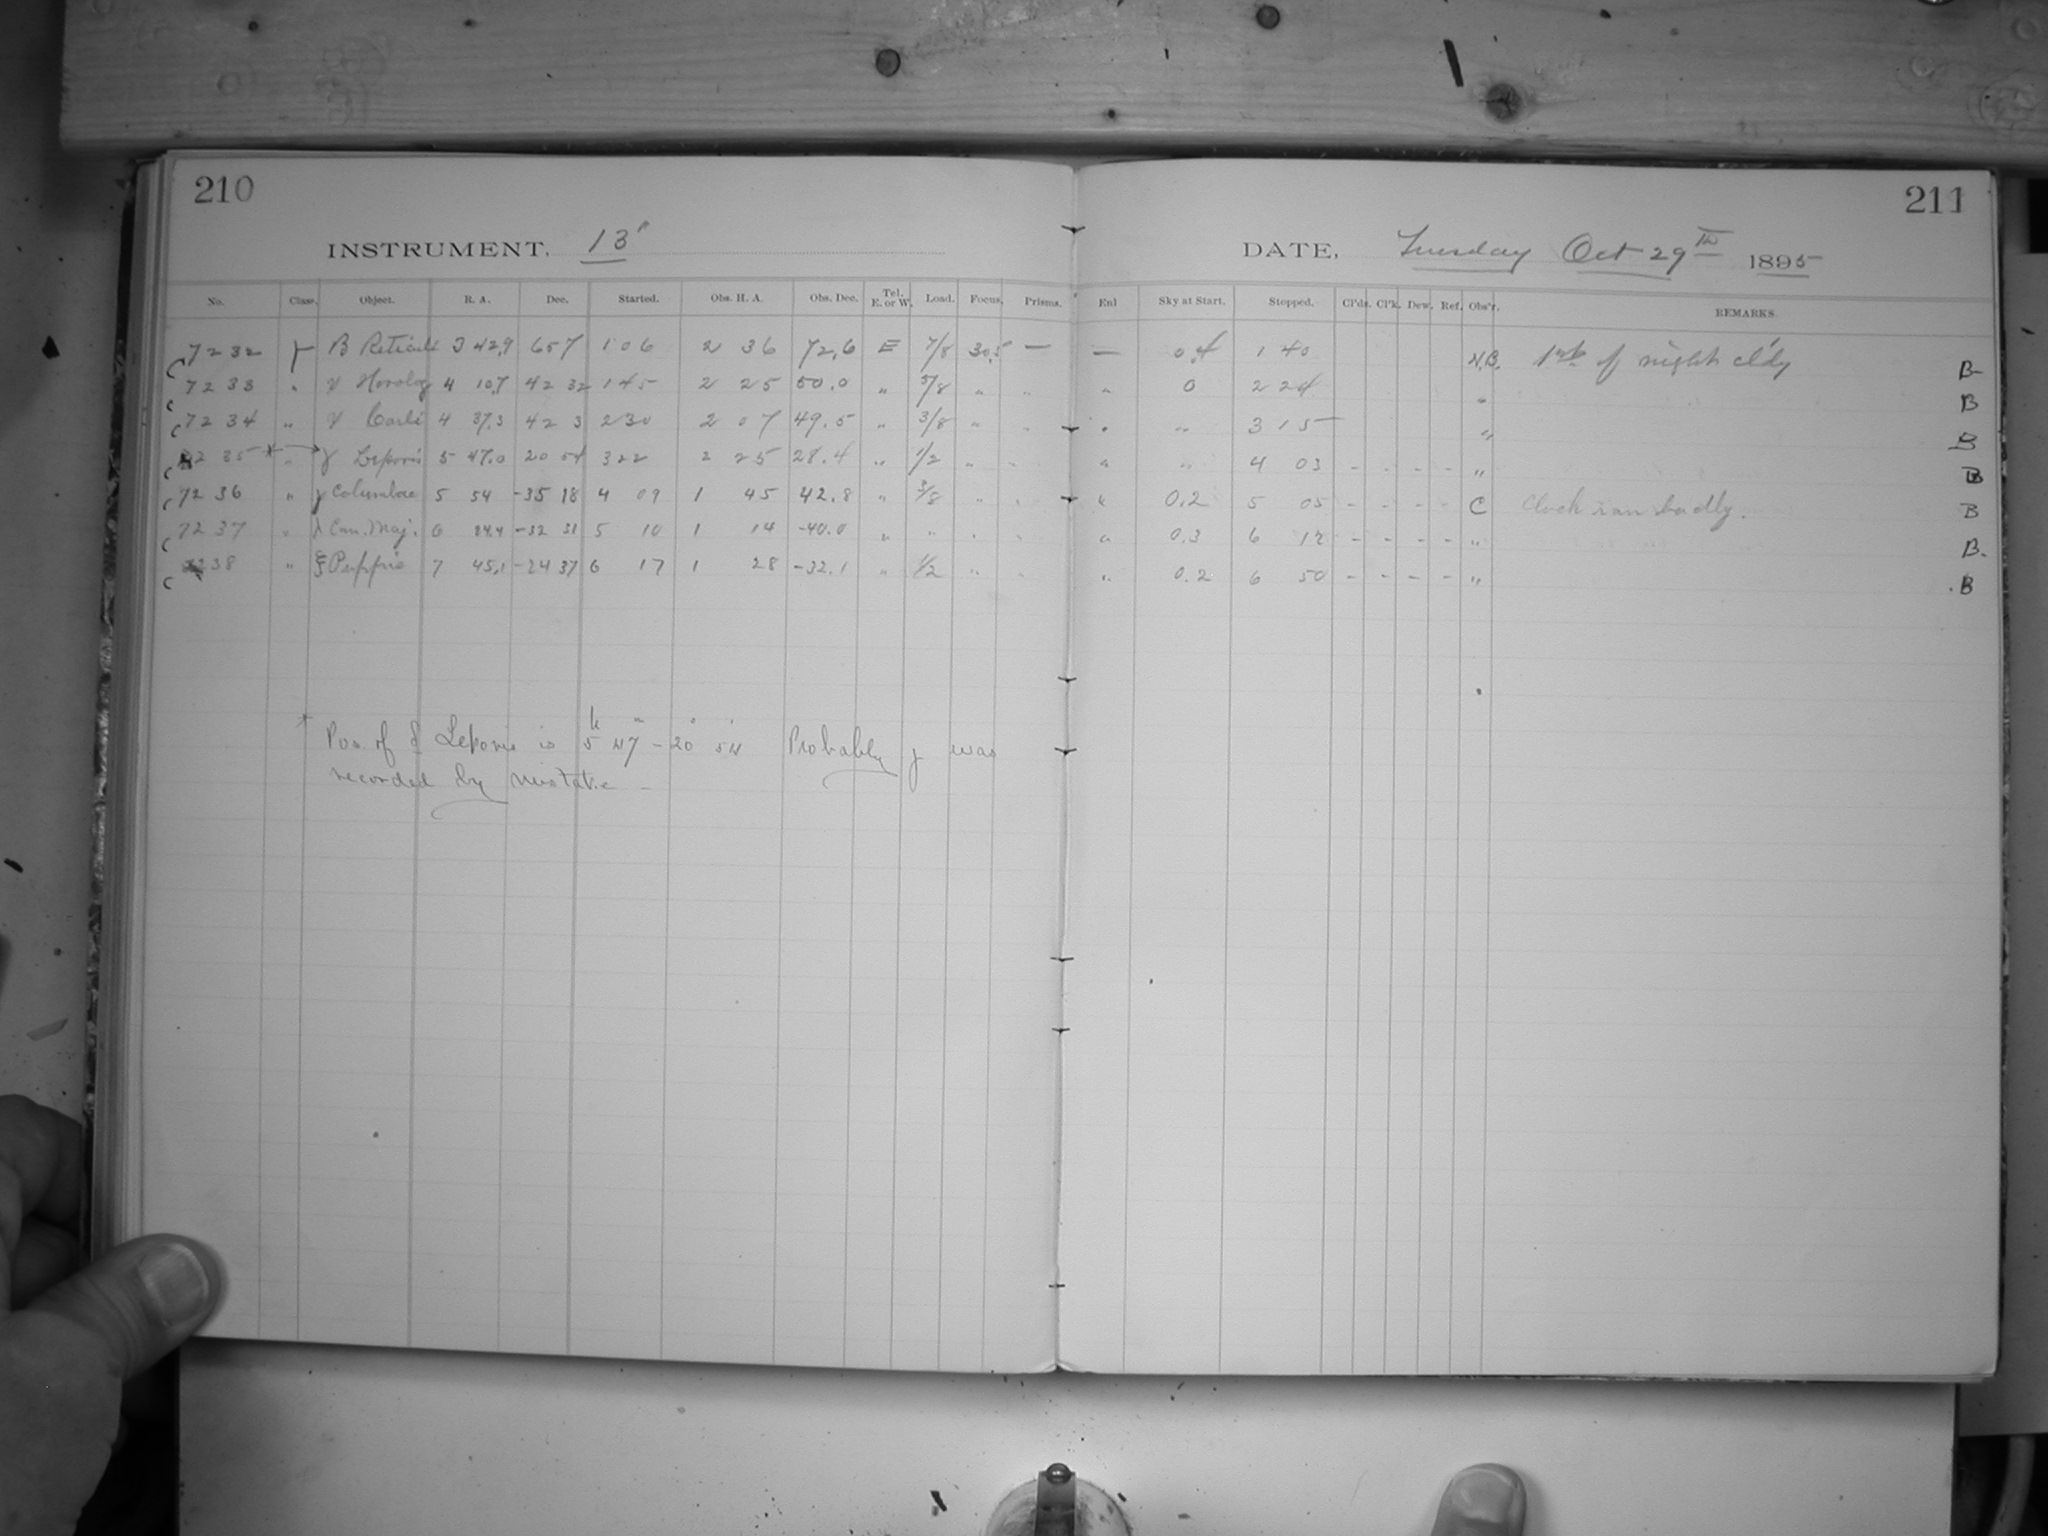 210
211
INSTRUMENT. 13"
DATE, Tuesday Oct 29th 1895
No. Class. Object. R. A. Dec. Started. Obs. H. A. Obs. Dec. Tel. E. or W. Load. Focus. Prisms. Enl Sky at Start. Stopped. Cl'ds. Cl'k. Dew. Ref. Obs'r. REMARKS.
7232 B Reticuli 3 42.9 65 7 1 06 2 36 72.6 E 7/8 30.5 — — 0.4 1 40 1st of night cl'dy B
7233 " Horolog 4 10.7 42 32 1 45 2 25 50.0 " 5/8 " " " 0 2 24 " B
7234 " 4 37.3 42 3 2 30 2 07 49.5 " 3/8 " " " " 3 15 " B
7235 * " γ Leporis 5 47.0 20 54 3 22 2 25 28.4 " 1/2 " " " " 4 03 - - - - " B
7236 " γ Columbae 5 54 -35 18 4 09 1 45 42.8 " 3/8 " " " 0.2 5 05 - - - - C Clock ran badly. B
7237 " λ Can. Maj. 6 24.4 -32 31 5 10 1 14 -40.0 " " " " " 0.3 6 12 - - - - " B
7238 " ξ Puppis 7 45.1 -24 37 6 17 1 28 -32.1 " 1/2 " " " 0.2 6 50 - - - - " B
* Pos. of δ Leporis is 5h 47m -20° 54' Probably γ was
recorded by mistake -